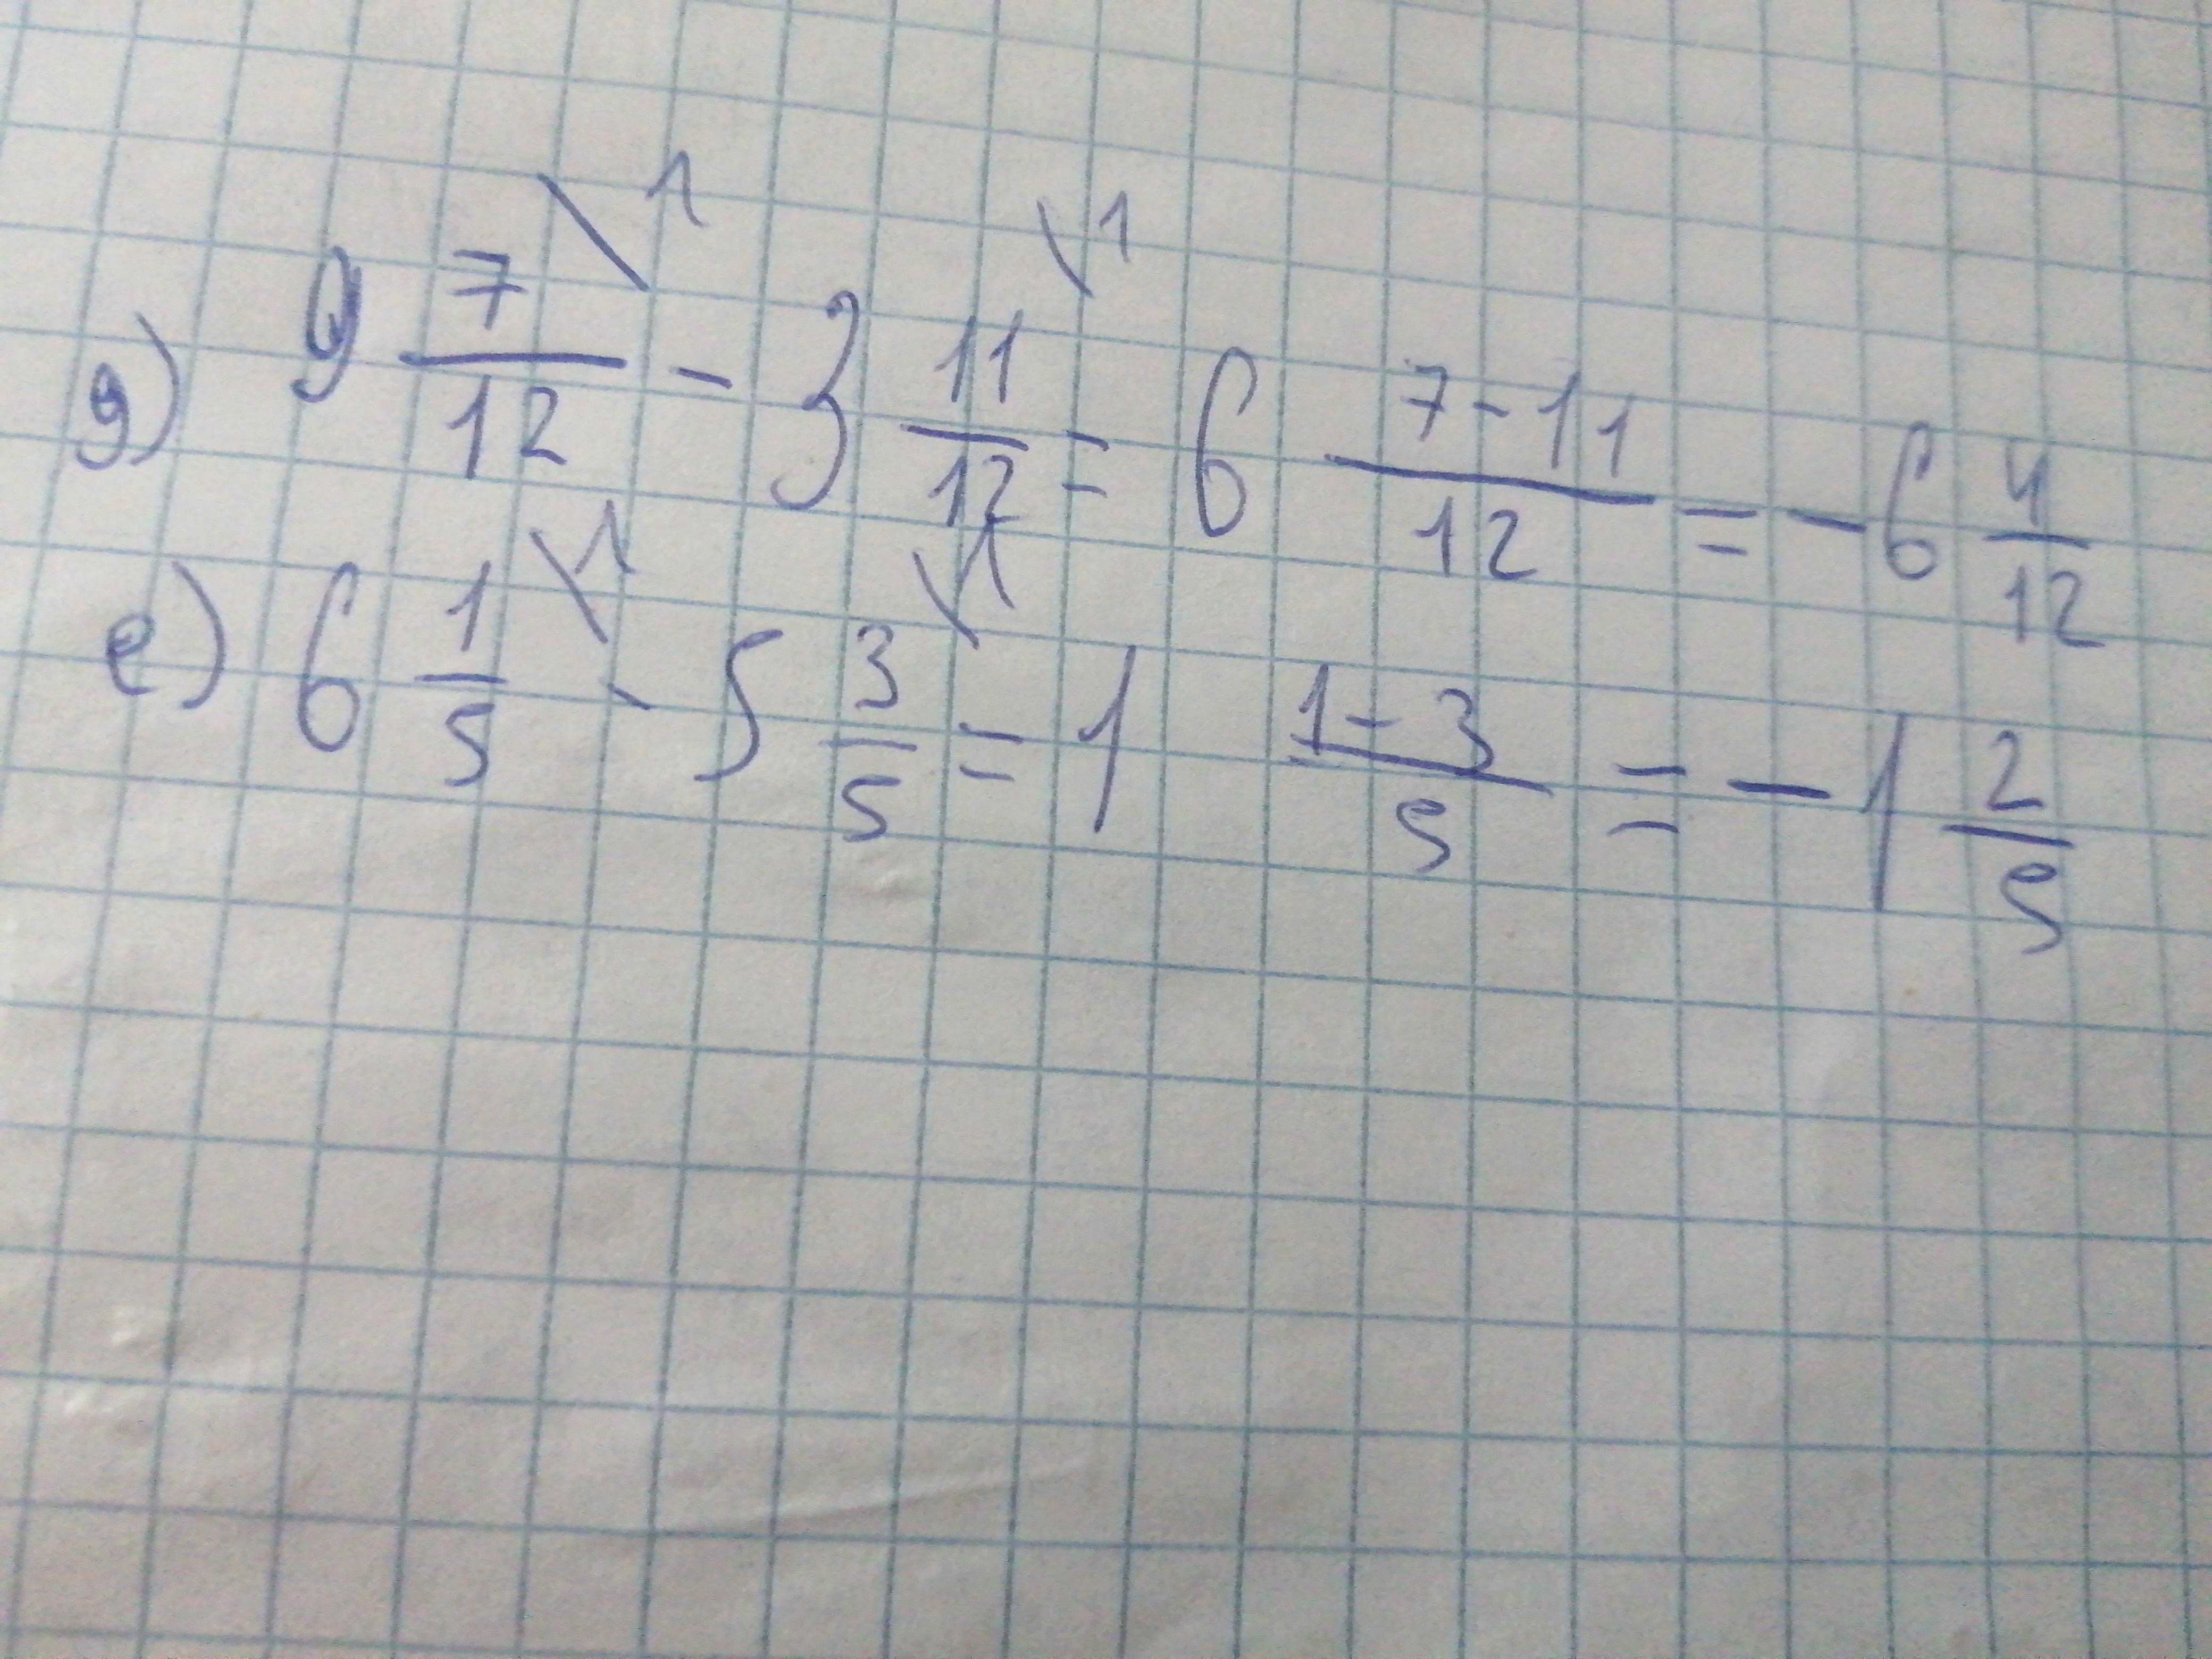 д) 9 7/12 \1 - 3 11/12 \1 = 6 7-11/12 = - 6 4/12
е) 6 1/5 \1 - 5 3/5 \1 = 1 1-3/5 = - 1 2/5